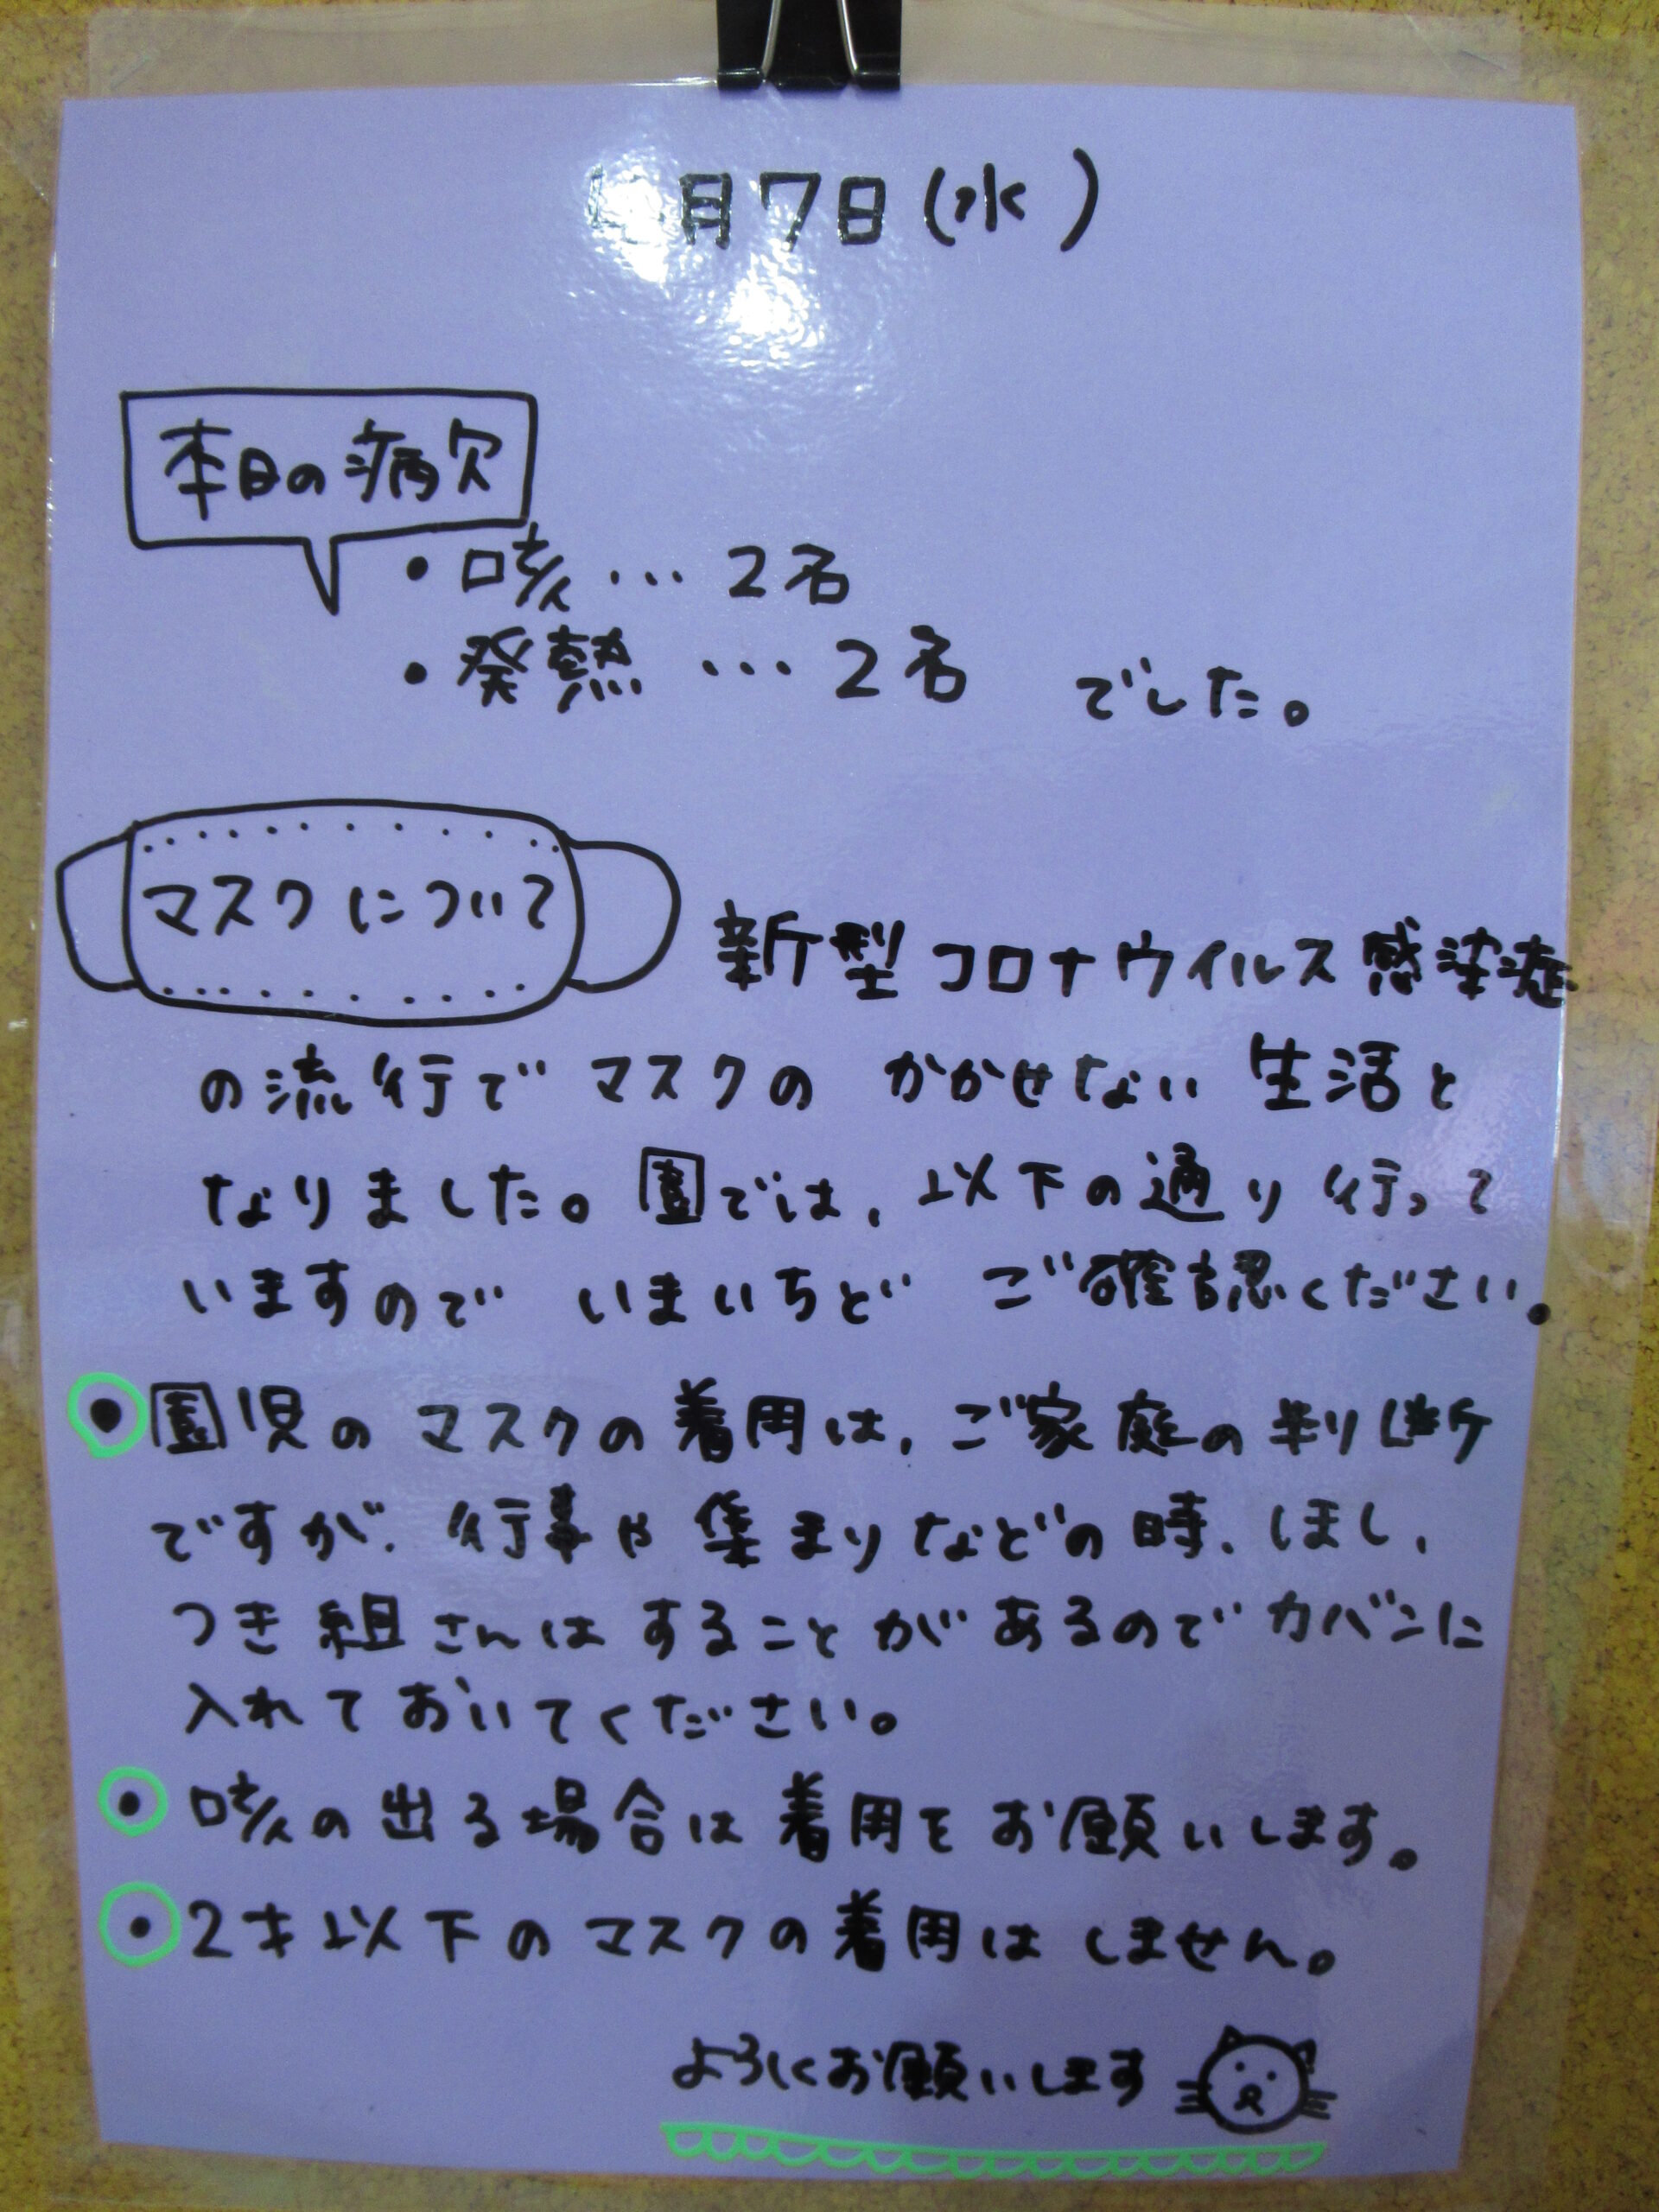 月7日(水)
本日の病欠
・咳…2名
・発熱…2名 でした。
マスクについて
新型コロナウイルス感染症
の流行でマスクの かかせない 生活と
なりました。園では、以下の通り行って
いますので いまいちど ご確認ください。
●園児のマスクの着用は、ご家庭の判断
ですが、行事や集まりなどの時、ほし、
つき組さんはすることがあるのでカバンに
入れておいてください。
●咳の出る場合は着用をお願いします。
●2才以下のマスクの着用はしません。
よろしくお願いします